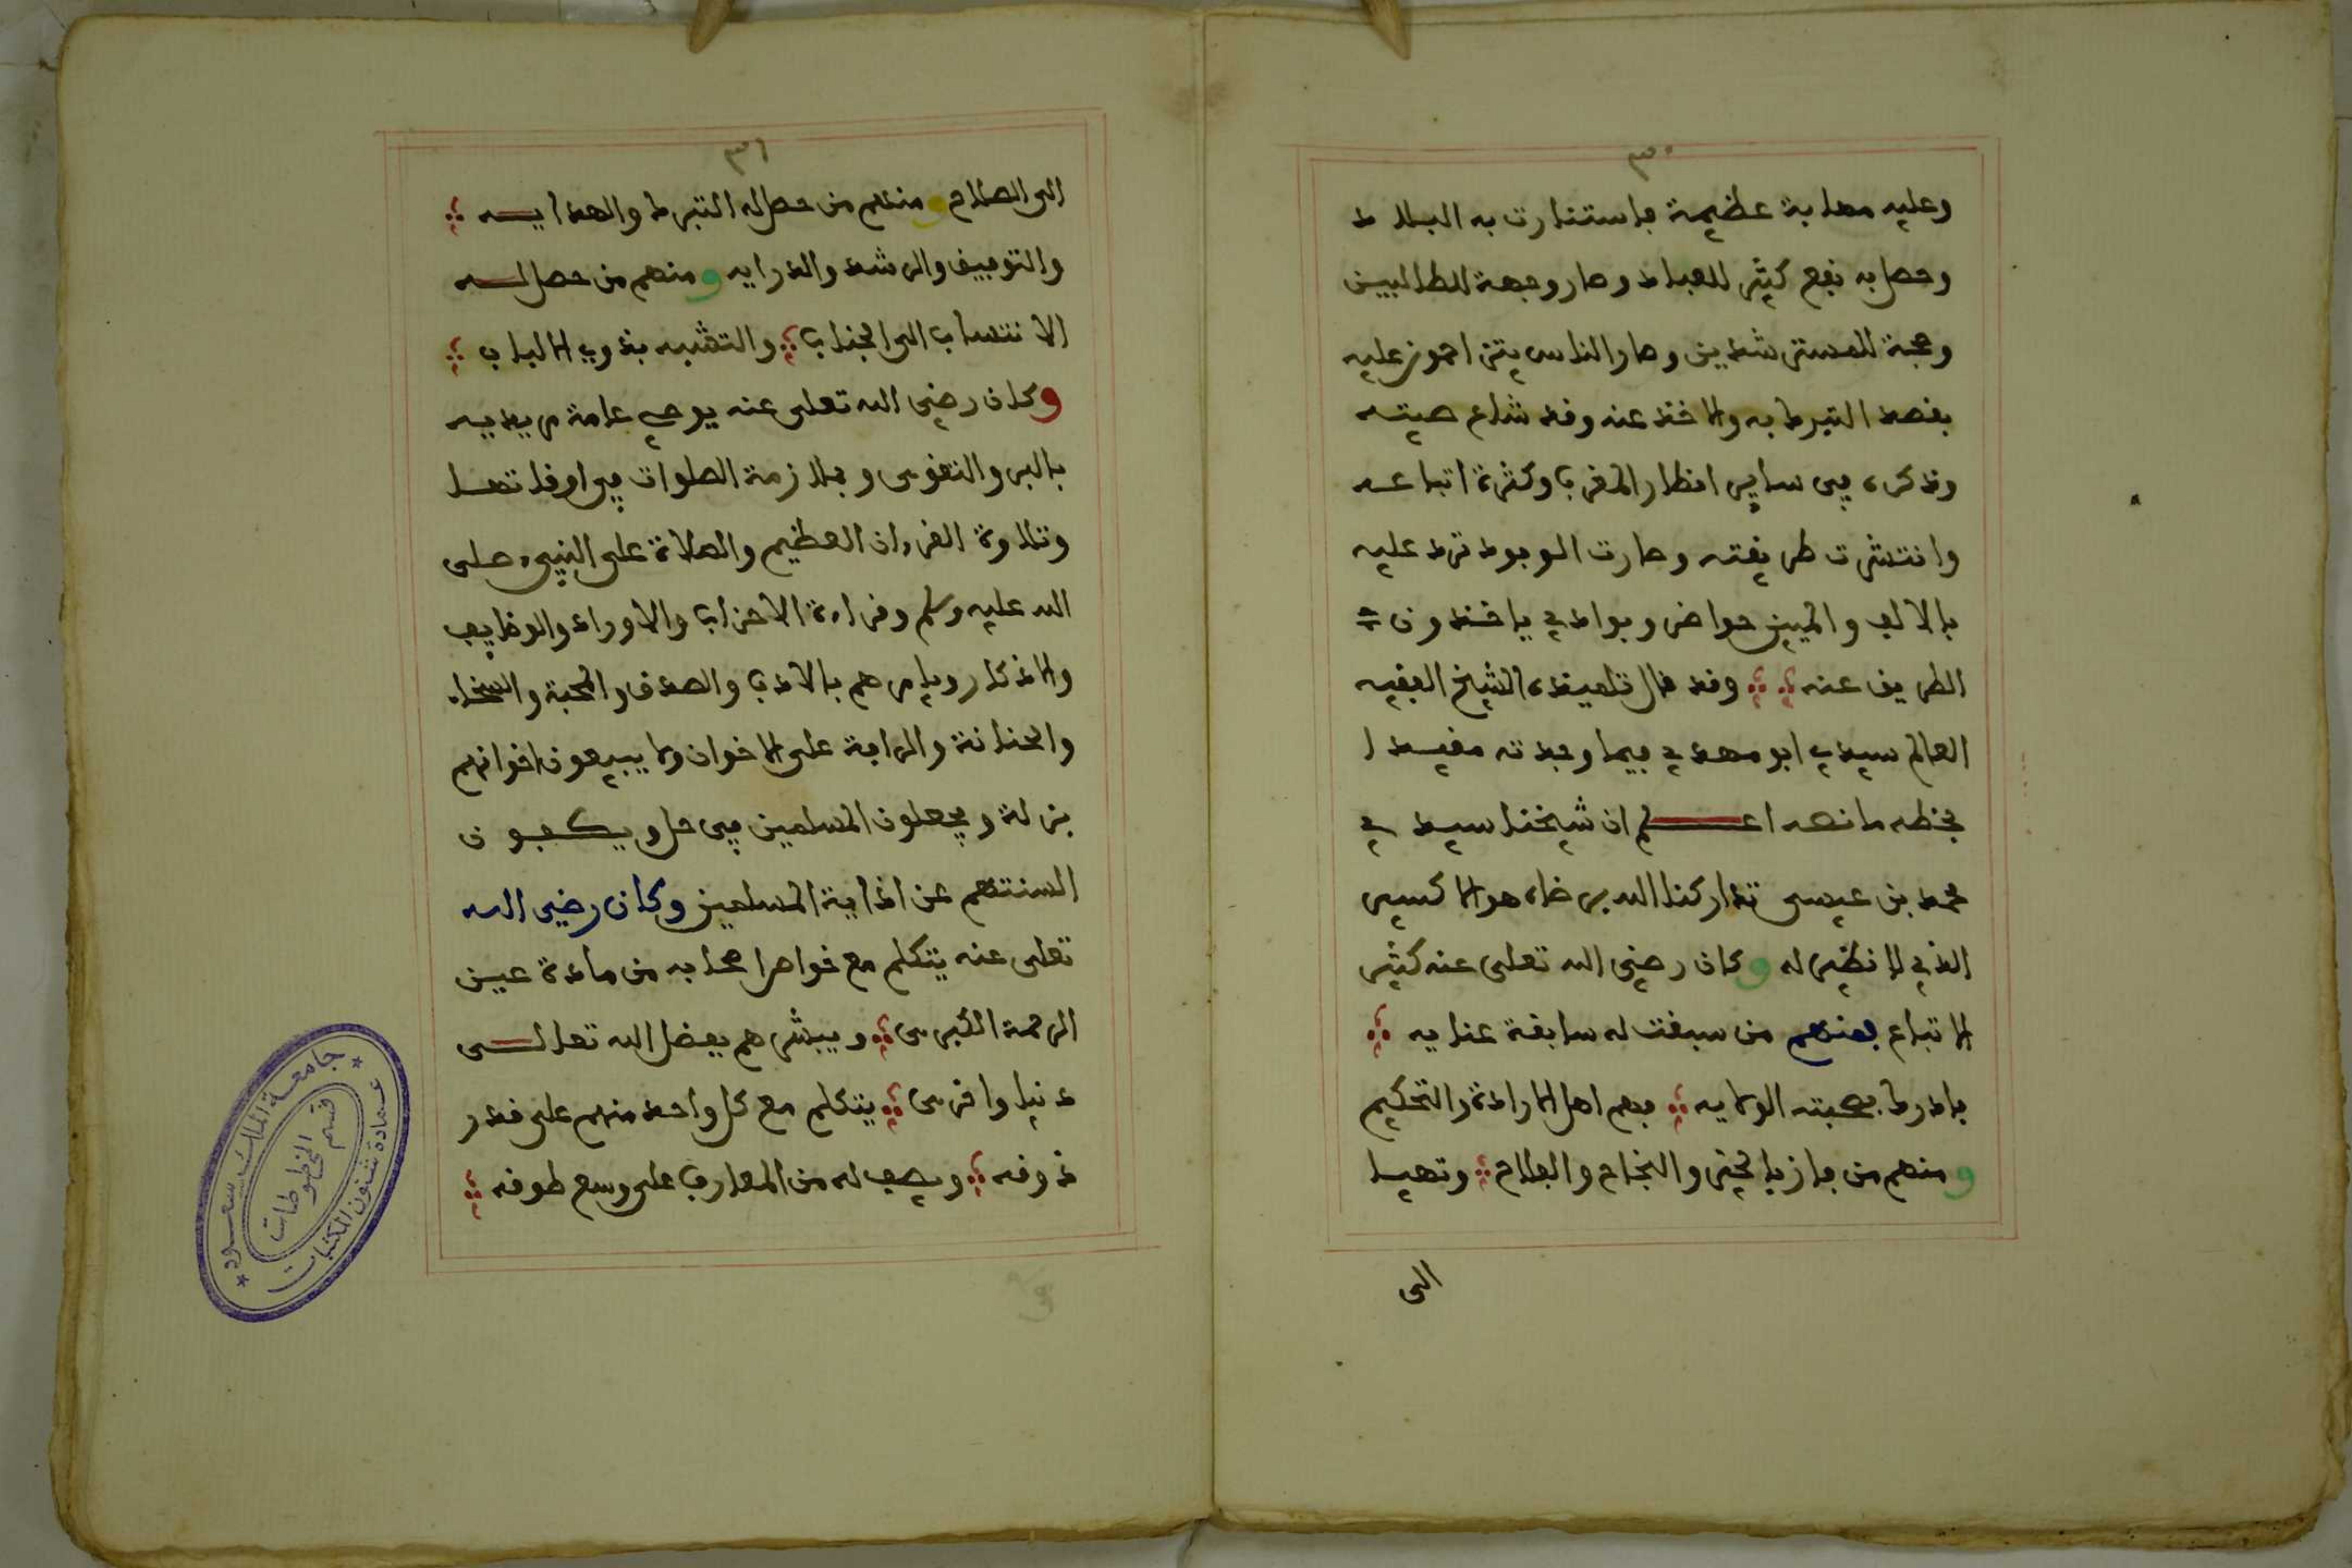 ٣٠
وعليه مهابة عظيمة فاستنارت به البلاد
وحصل به نفع كثير للعباد وصار وجهة للطالبين
وحجة للمسترشدين وصار الناس يتزاحمون عليه
بقصد التبرك به والاخذ عنه وقد شاع صيته
وذكره في ساير اقطار المغرب وكثرة اتباعه
وانتشرت طريقته وصارت الوفود ترد عليه
بالالف والميين حواضر وبوادي ياخذون
الطريق عنه وقد قال تلميذه الشيخ الفقيه
العالم سيدي ابو مهدي فيما وجدته مقيدا
بخطه ما نصه اعلم ان شيخنا سيدي
محمد بن عيسى تداركنا الله برضاه هو الاكسير
الذي لا نظير له وكان رضي الله تعلى عنه كثير
الاتباع فمنهم من سبقت له سابقة عنايه
فادرك بصحبته الولايه فهم اهل الارادة والتحكيم
ومنهم من فاز بالخير والنجاح والفلاح وتهيا
الى
٣١
الى الصلاح ومنهم من حصل له التبرك والهدايه
والتوفيق والرشد والدرايه ومنهم من حصل له
الانتساب الى الجناب والتشبه بذوي الالباب
وكان رضي الله تعلى عنه يوصي عامة مريديه
بالبر والتقوى وبملازمة الصلوات في اوقاتها
وتلاوة القرءان العظيم والصلاة على النبيء صلى
الله عليه وسلم وقراءة الاحزاب والاوراد والوظايف
والاذكار ويامرهم بالادب والصدق والمحبة والسخاء
والحنانة والرافة على الاخوان ولا يبيعون اخوانهم
بزلة ويجعلون المسلمين في حل ويكفون
السنتهم عن اذاية المسلمين وكان رضي الله
تعلى عنه يتكلم مع خواص اصحابه من مادة عين
الرحمة الكبرى ويبشرهم بفضل الله تعالى
دنيا واخرى يتكلم مع كل واحد منهم على قدر
ذوقه ويصف له من المعارف على وسع طوقه
جامعة الملك سعود
عمادة شئون المكتبات
قسم المخطوطات